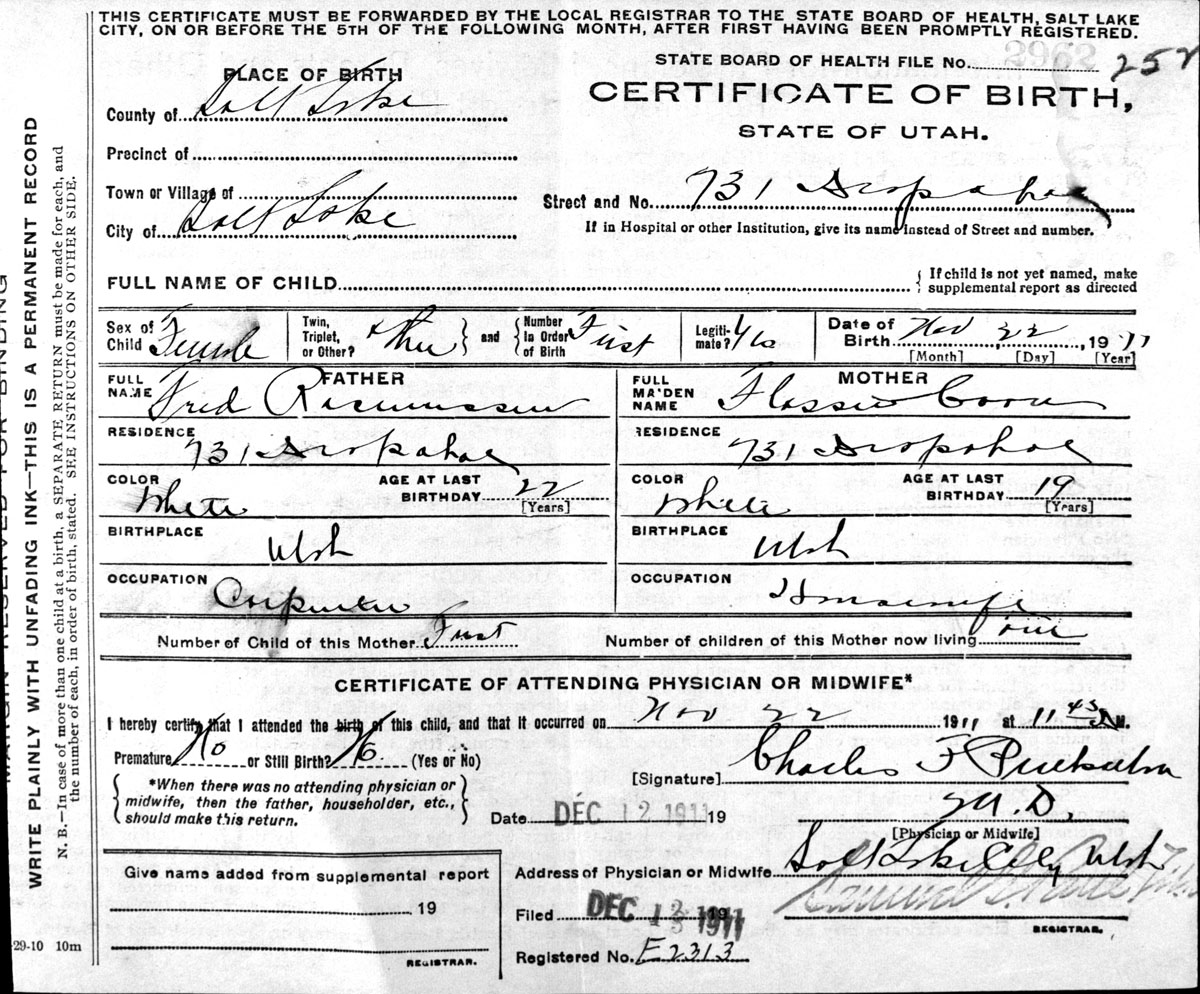 THIS CERTIFICATE MUST BE FORWARDED BY THE LOCAL REGISTRAR TO THE STATE BOARD OF HEALTH, SALT LAKE
CITY, ON OR BEFORE THE 5TH OF THE FOLLOWING MONTH, AFTER FIRST HAVING BEEN PROMPTLY REGISTERED.
STATE BOARD OF HEALTH FILE No. 252
PLACE OF BIRTH
CERTIFICATE OF BIRTH,
STATE OF UTAH.
County of Salt Lake
Precinct of
Town or Village of
City of Salt Lake
Street and No. 731 Arapahoe
If in Hospital or other Institution, give its name instead of Street and number.
FULL NAME OF CHILD { If child is not yet named, make
supplemental report as directed
Sex of Child Female
Twin, Triplet, or Other? other } and { Number in Order of Birth First
Legitimate? Yes
Date of Birth Nov 22, 1911
[Month] [Day] [Year]
FATHER
FULL NAME Fred Rasmussen
RESIDENCE 731 Arapahoe
COLOR White AGE AT LAST BIRTHDAY 22
[Years]
BIRTHPLACE Utah
OCCUPATION Carpenter
MOTHER
FULL MAIDEN NAME Flossie
RESIDENCE 731 Arapahoe
COLOR White AGE AT LAST BIRTHDAY 19
[Years]
BIRTHPLACE Utah
OCCUPATION Housewife
Number of Child of this Mother First Number of children of this Mother now living one
CERTIFICATE OF ATTENDING PHYSICIAN OR MIDWIFE*
I hereby certify that I attended the birth of this child, and that it occurred on Nov 22 1911 at 11 45 M.
Premature No or Still Birth? No (Yes or No)
{ *When there was no attending physician or
midwife, then the father, householder, etc.,
should make this return. }
[Signature] Charles F
Date DEC 12 1911 19 M.D.
[Physician or Midwife]
Address of Physician or Midwife Salt Lake City Utah
Filed DEC 1911
REGISTRAR.
Registered No. E2313
Give name added from supplemental report
19
REGISTRAR.
29-10 10m
MARGIN RESERVED FOR BINDING
WRITE PLAINLY WITH UNFADING INK—THIS IS A PERMANENT RECORD
N. B.—In case of more than one child at a birth, a SEPARATE RETURN must be made for each, and
the number of each, in order of birth, stated. SEE INSTRUCTIONS ON OTHER SIDE.